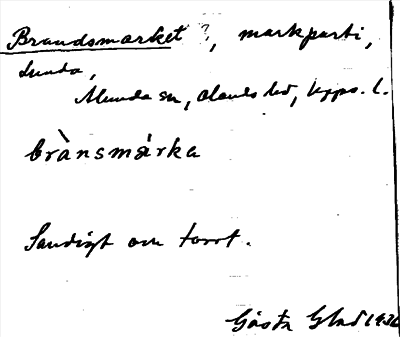 Brandsmarket ?, markparti,
Lunda,
Munda sn, Olands hd, Upps. l.
brànsmárka
Sandigt om torrt.
Gösta Glad 1936